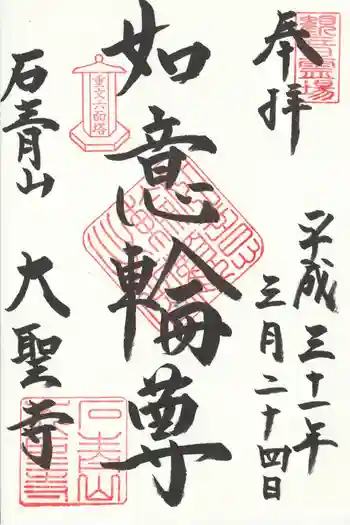 奉拝
観音霊場
平成三十一年
三月二十四日
如意輪尊
重文六面塔
石青山
大聖寺
石青山
大聖寺